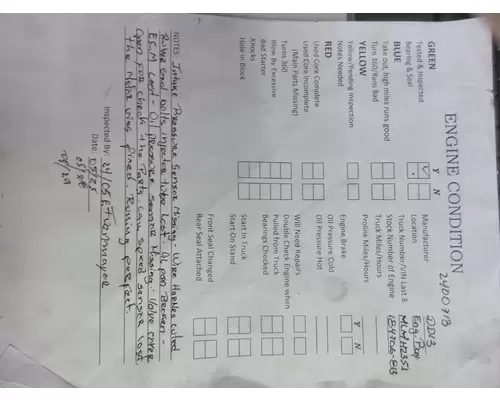 ENGINE CONDITION
2400713
GREEN
Y N
Tested & Inspected
Bearing & Seal
BLUE
Take out, high miles runs good
Turn 360/Runs Bad
YELLOW
Yellow/Pending Inspection
Notes Needed
RED
Used Core Complete
Used Core Incomplete
(Main Parts Missing)
Turns 360
(Blow By Excessive
Bad Starter
Knocks
Hole in Block
Manufacturer DD13
Location Eng. Bay
Truck Number/VIN Last 8 MLMH2351
Stock Number of Engine 184706-813
Truck Miles/Hours
Prolink Miles/Hours
Y N
Engine Brake
Oil Pressure Cold
Oil Pressure Hot
Will Need Repairs
Double Check Engine when
Pulled from Truck
Bearings Checked
Start in Truck
Start On Stand
Front Seal Changed
Rear Seal Attached
NOTES Intake Pressure Sensor Missing. Wire Harness cuted
Rule and oil injector tube lost - oil pan Broken -
ECM lost - Oil pressure sensor Missing. Valve cover
open for check the parts cam speed sensor lost.
the Motor was fixed. Running perfect.
Inspected By:
Date: